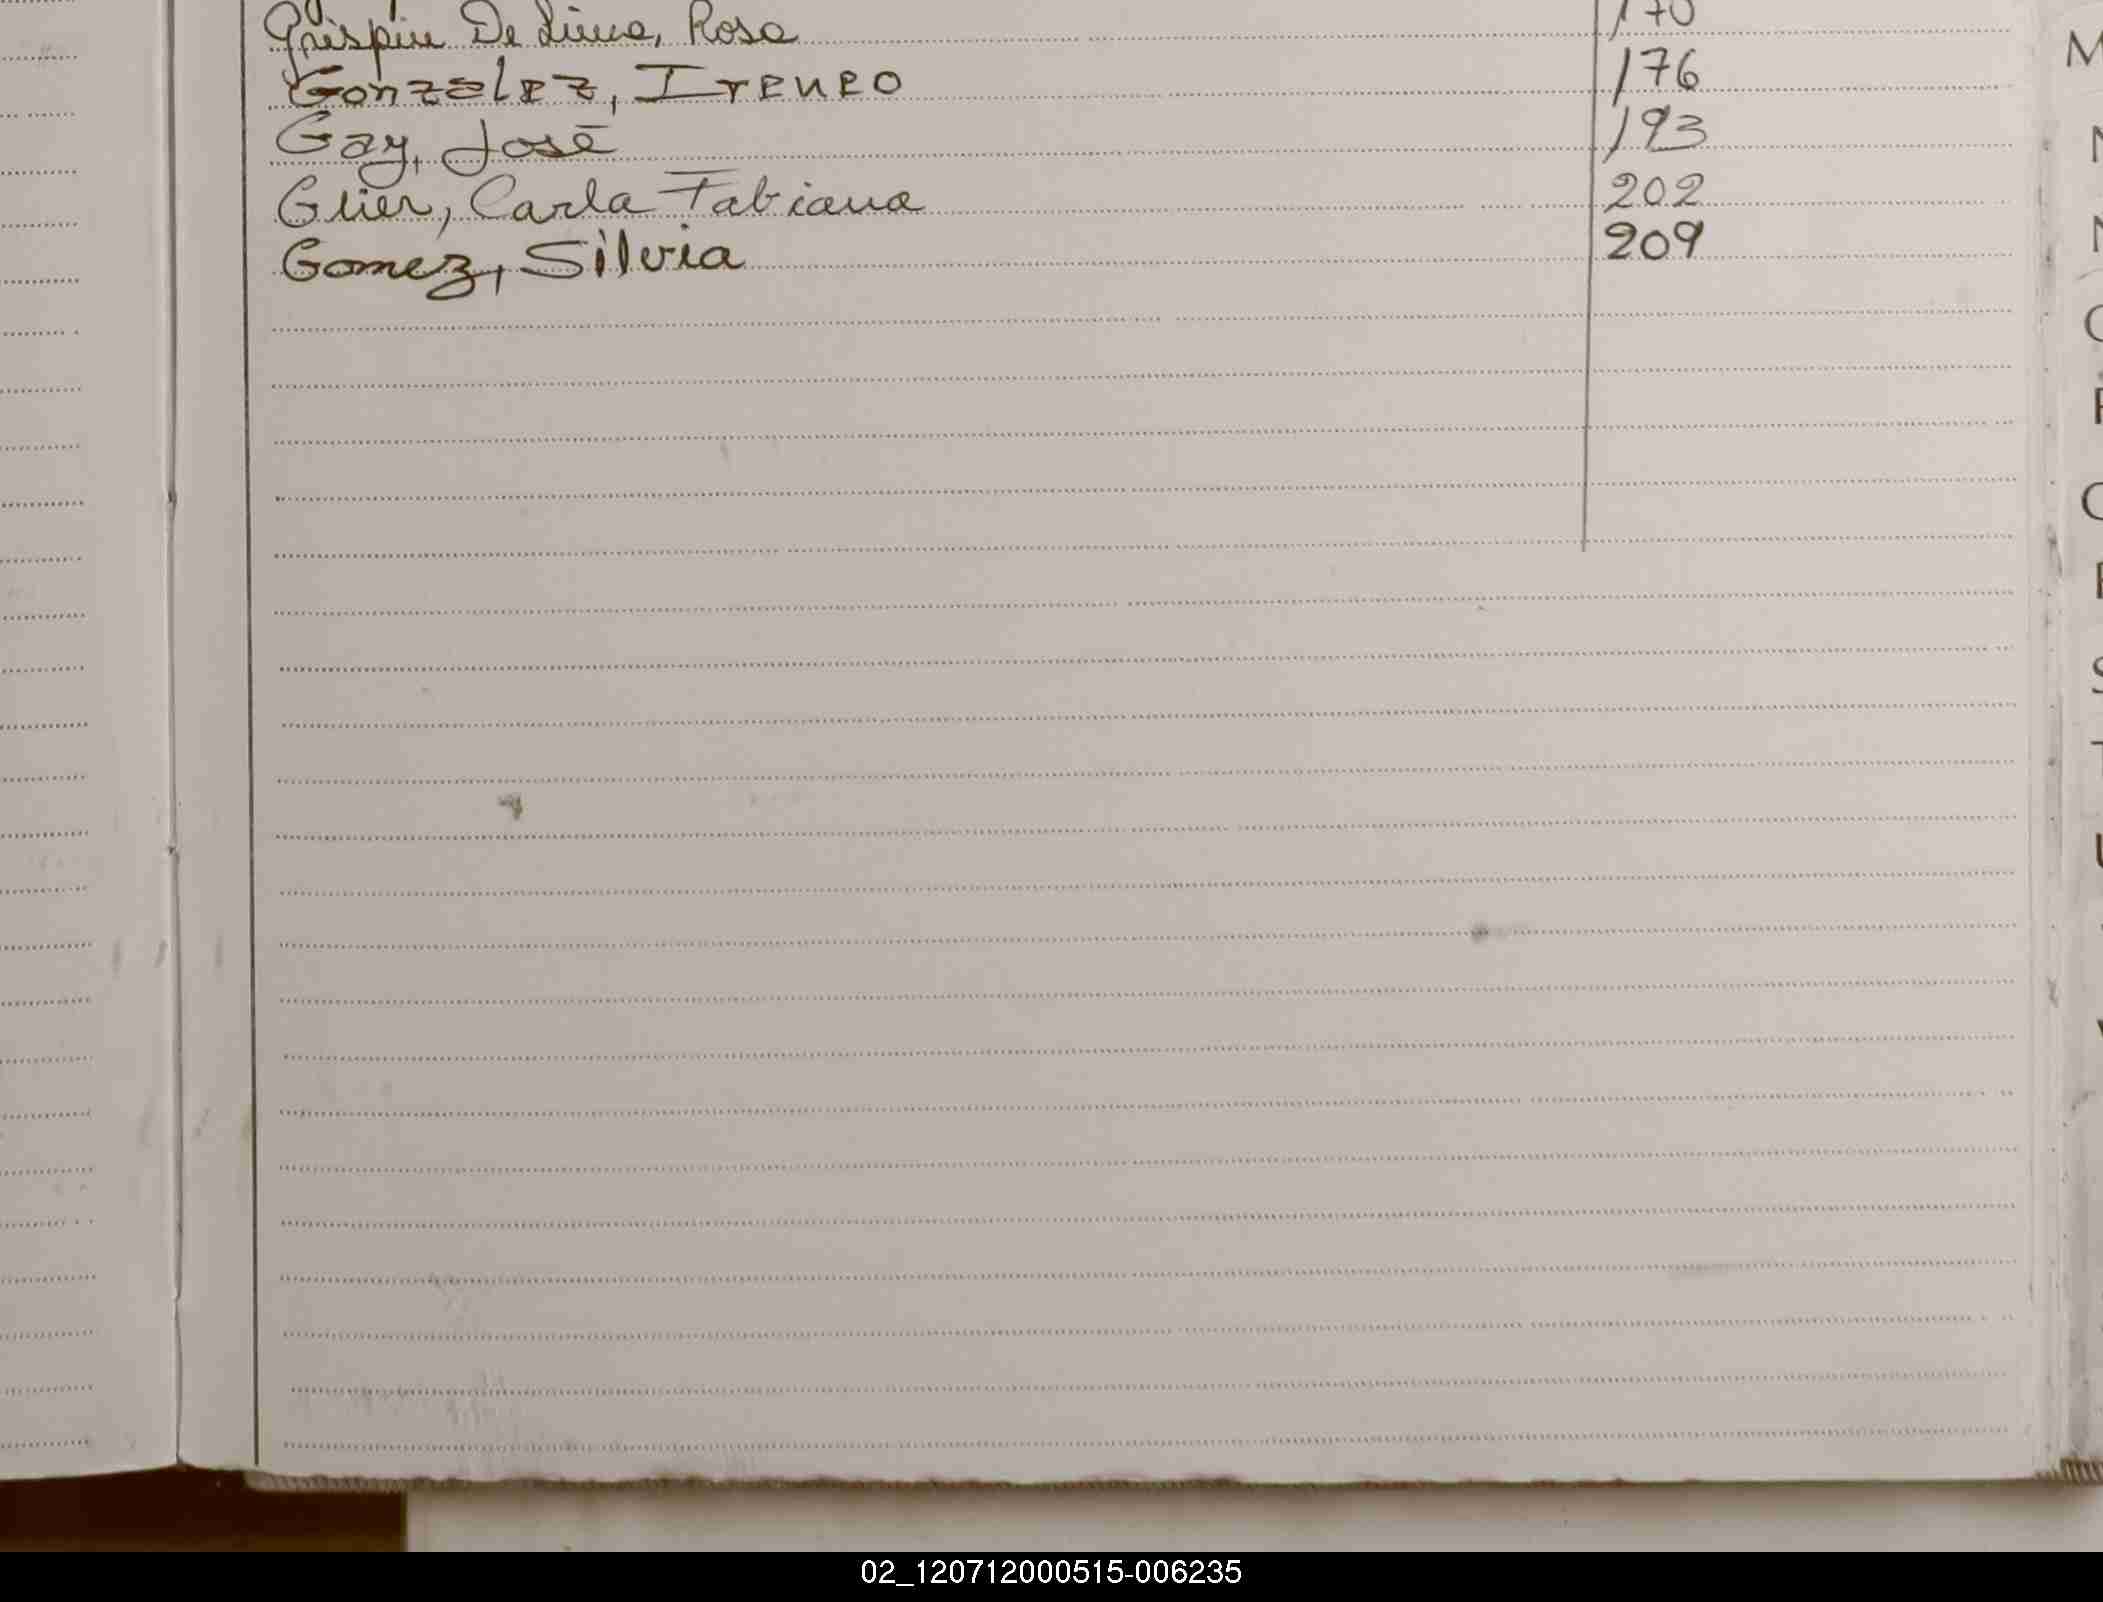 Grispin De Lima, Rosa 170
Gonzalez, Ireneo 176
Gay, José 193
Glier, Carla Fabiana 202
Gomez, Silvia 209
M
S
T
U
02_120712000515-006235